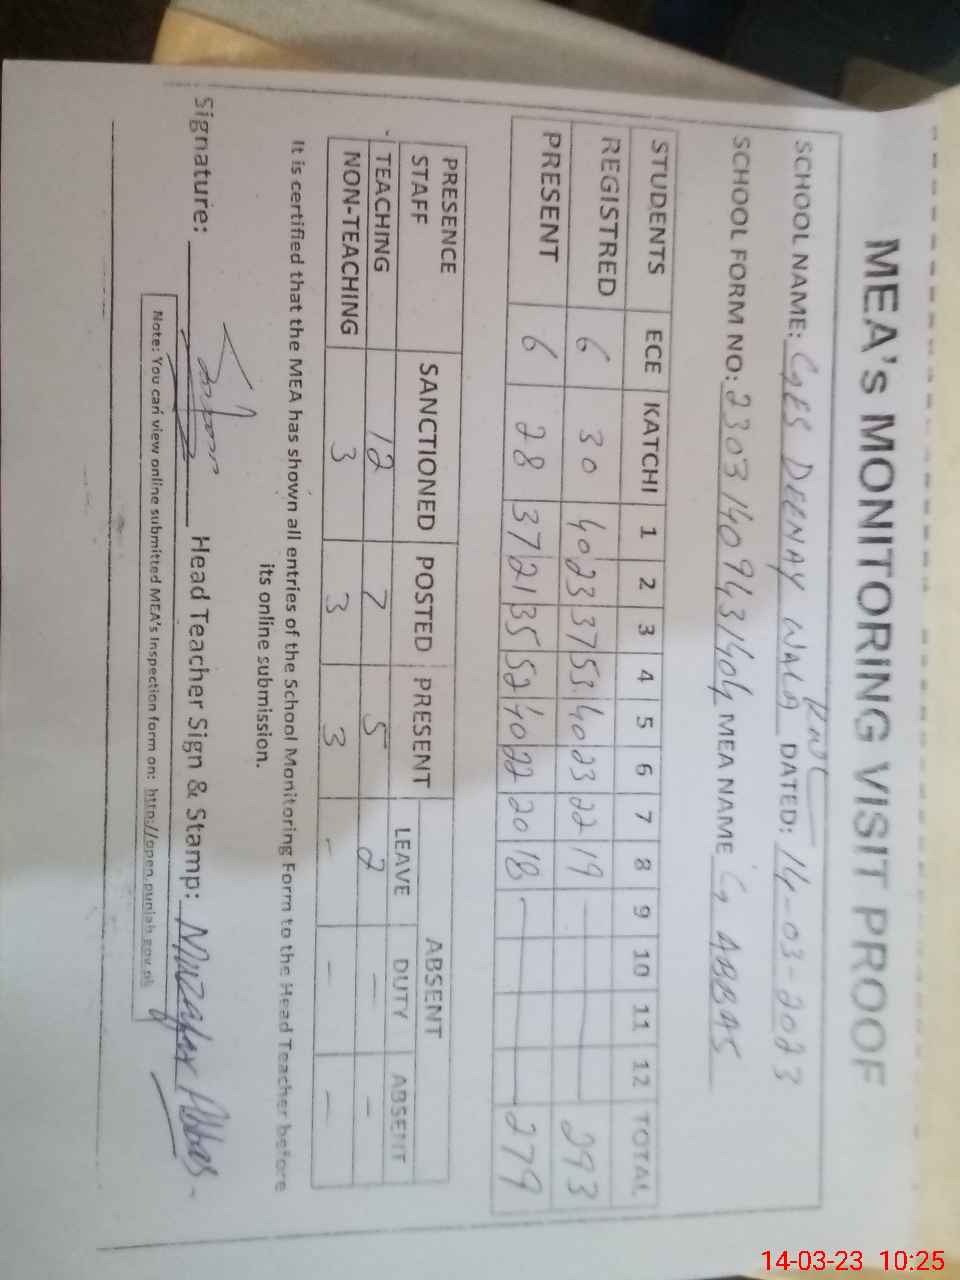 MEA's MONITORING VISIT PROOF
SCHOOL NAME: GES DEENAY WALA DATED: 14-03-2023
SCHOOL FORM NO: MEA NAME G ABBAS
STUDENTS ECE KATCHI 1 2 3 4 5 6 7 8 9 10 11 12 TOTAL
REGISTRED 6 30 40 23 37 53 40 23 22 19 293
PRESENT 6 28 37 21 35 52 40 22 20 18 279
PRESENCE STAFF SANCTIONED POSTED PRESENT ABSENT
LEAVE DUTY ABSENT
TEACHING 12 7 5 2 - -
NON-TEACHING 3 3 3 - - -
It is certified that the MEA has shown all entries of the School Monitoring Form to the Head Teacher before
its online submission.
Signature: Head Teacher Sign & Stamp: Muzafar Abbas
Note: You can view online submitted MEA's Inspection form on: http://open.punjab.gov.pk
14-03-23 10:25